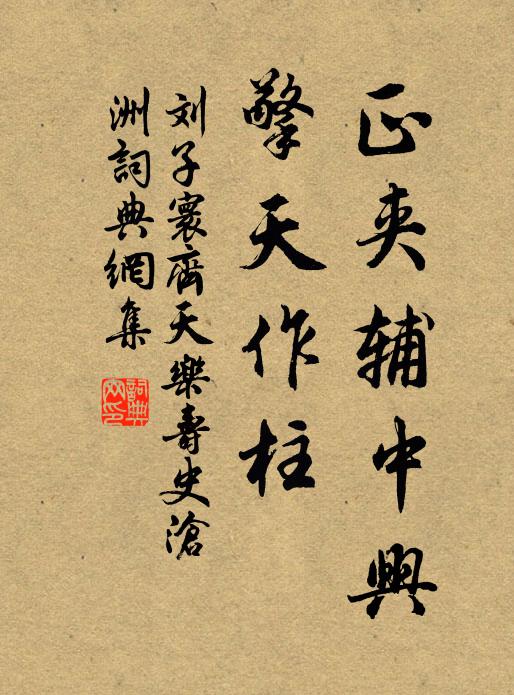 正夹辅中興
擎天作柱
刘子寰齊天樂壽史滄
洲詞典網集
詞典網印